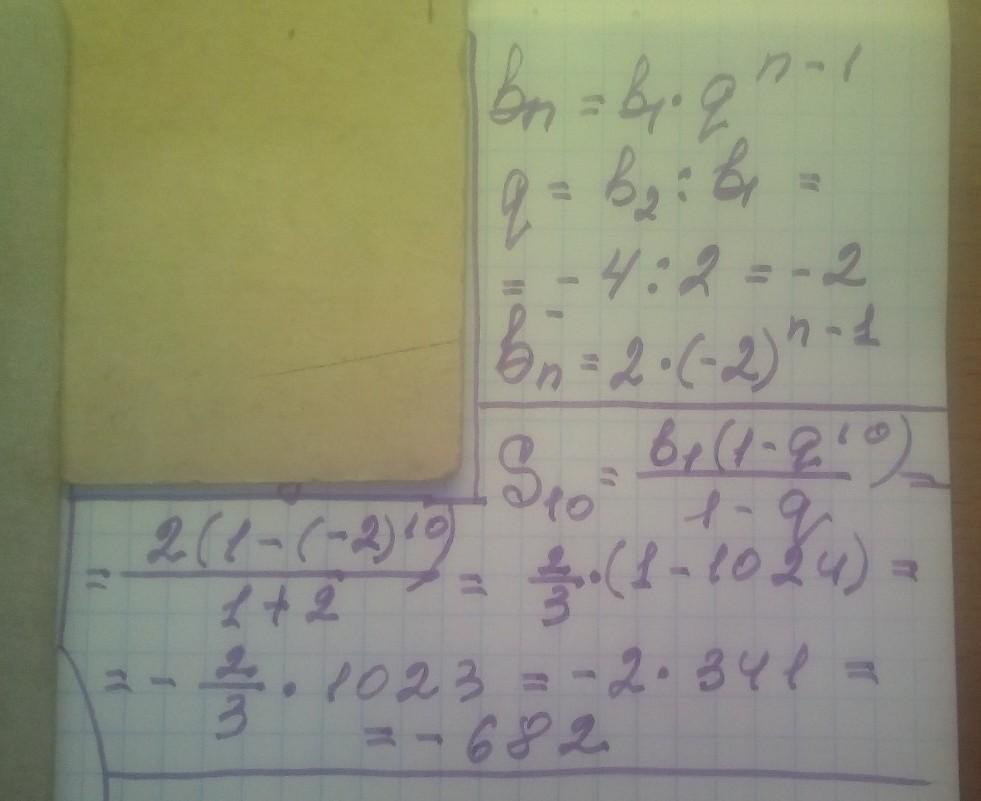 bn = b1 · q^(n - 1)
q = b2 : b1 =
= - 4 : 2 = - 2
bn = 2 · (-2)^(n - 1)
S10 = b1(1 - q^10) / (1 - q) =
= 2(1 - (-2)^10) / (1 + 2) = 2/3 · (1 - 1024) =
= - 2/3 · 1023 = - 2 · 341 =
= - 682